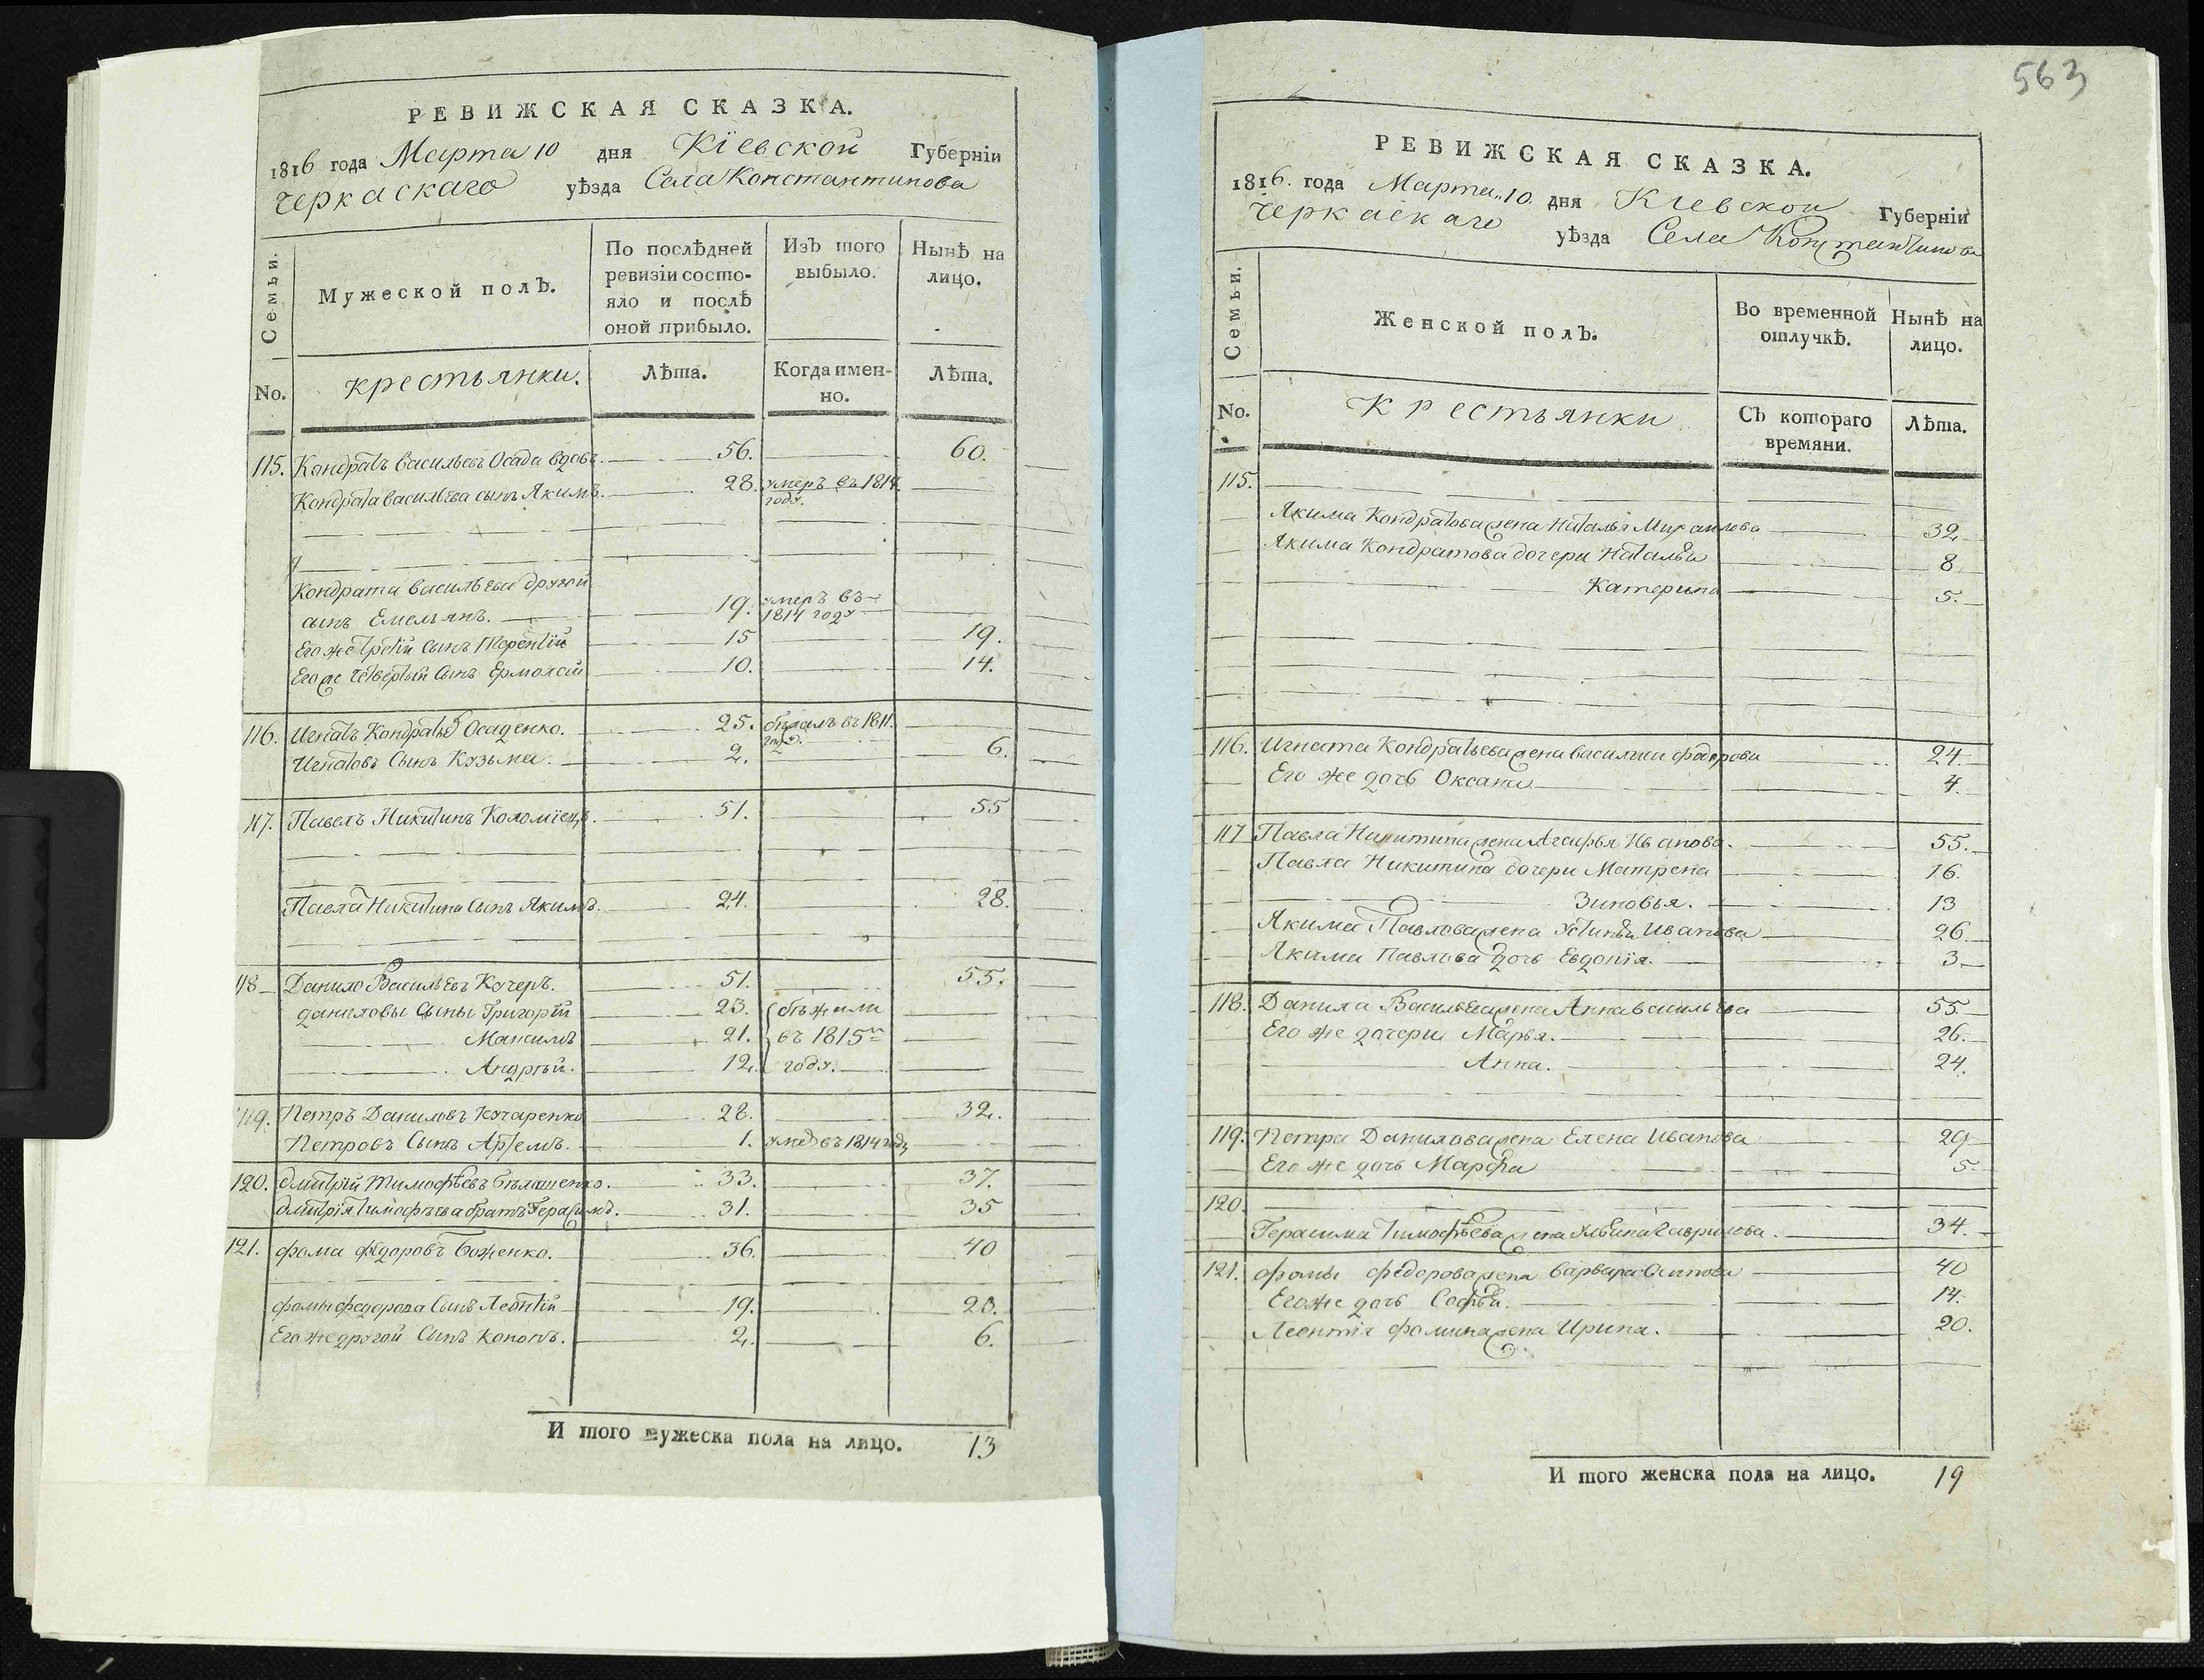 РЕВИЖСКАЯ СКАЗКА.
1816 года Марта 10 дня Кіевской Губерніи
Черкаскаго уѣзда Села Константинова
Семьи.
Мужеской полъ.
По послѣдней ревизіи состо-
яло и послѣ
оной прибыло.
Изъ того
выбыло.
Нынѣ на
лицо.
No.
крестьянки.
Лѣта.
Когда имен-
но.
Лѣта.
115. Кондратъ Васильевъ Осада вдовъ. 56. 60.
Кондрата Васильева сынъ Якимъ. 28. умеръ въ 1814
году.
Кондрата Васильева другой
сынъ Емельянъ. 19. умеръ въ
1814 году
Его же третій сынъ Терентій 15 19.
Его же четвертый сынъ Ермолай 10. 14.
116. Игнатъ Кондратьевъ Осаденко. 25. бѣжалъ въ 1811.
году.
Игнатовъ Сынъ Кузьма. 2. 6.
117. Павелъ Никитинъ Коломіецъ. 51. 55
Павла Никитина Сынъ Якимъ. 24. 28.
118 Данило Васильевъ Кучеръ. 51. 55.
даниловы Сыны Григорій 23. бѣжали
Максимъ 21. въ 1815м
Андрѣй. 12. году.
119. Петръ Даниловъ Кучаренко 28. 32.
Петровъ Сынъ Артемъ. 1. умеръ въ 1814 году
120. Дмитрій Тимофѣевъ Бѣлашенко. 33. 37.
Дмитрія Тимофѣева братъ Герасимъ. 31. 35
121. Фома Федоровъ Боженко. 36. 40
Фомы Федорова Сынъ Леонтій 19. 23.
Его же другой Сынъ Кононъ. 2. 6.
И того мужеска пола на лицо. 13
563
РЕВИЖСКАЯ СКАЗКА.
1816. года Марта 10. дня Кіевской Губерніи
Черкаскаго уѣзда Села Константинова
Семьи.
Женской полъ.
Во временной
отлучкѣ.
Нынѣ на
лицо.
No.
Крестьянки
Съ котораго
времяни.
Лѣта.
115.
Якима Кондратова жена Наталья Михаилова 32
Якима Кондратова дочери Наталья 8
Катерина 5.
116. Игната Кондратьева жена Василиси Федорова 24
Его же дочь Оксана 4.
117 Павла Никитина жена Агафья Иванова. 55.
Павла Никитина дочери Матрена 16.
Зиновья. 13
Якима Павлова жена Устинья Иванова 26
Якима Павлова дочь Евдокія. 3
118. Данила Васильева жена Анна Васильева 55
Его же дочери Марья. 26.
Анна. 24.
119. Петра Данилова жена Елена Иванова 29
Его же дочь Марфа 5.
120.
Герасима Тимофѣева жена Ульяна Гаврилова. 34.
121. Фомы Федорова жена Варвара Осипова 40
Его же дочь Софья. 14.
Леонтія Фомина жена Ирина. 20.
И того женска пола на лицо. 19